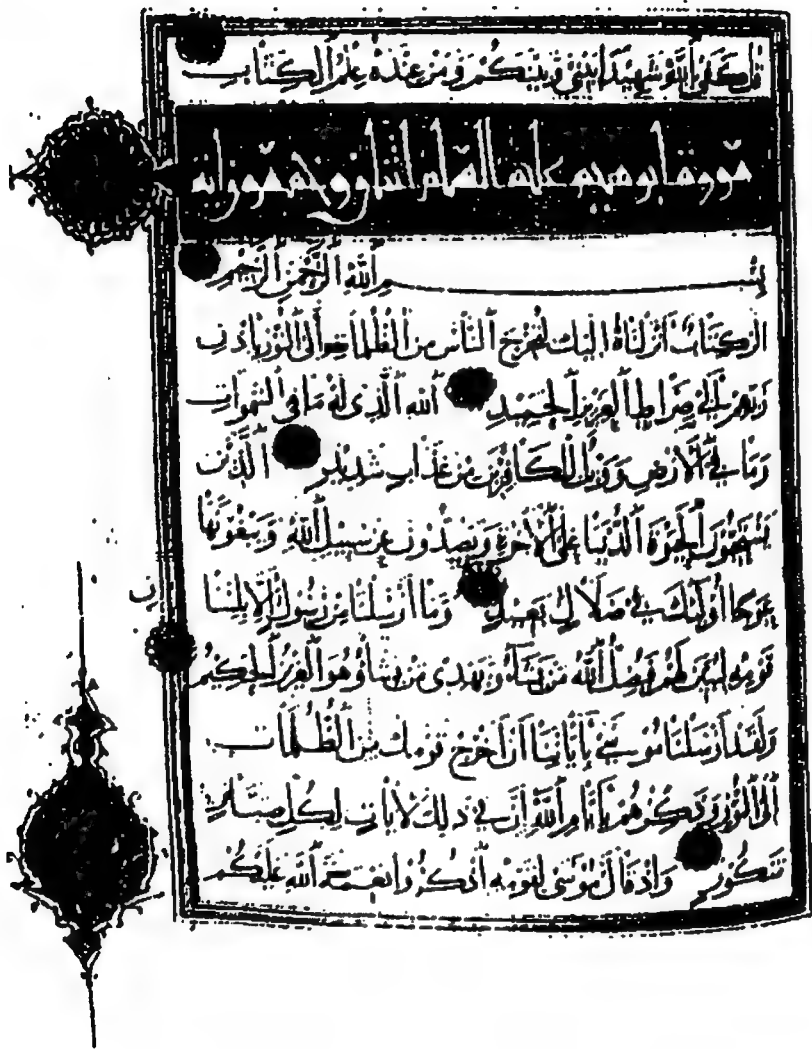 قُلْ كَفَى بِاللَّهِ شَهِيدًا بَيْنِي وَبَيْنَكُمْ وَمَنْ عِنْدَهُ عِلْمُ الْكِتَابِ
سورة ابرهيم عليه السلام اثنان وخمسون اية
بِسْمِ اللَّهِ الرَّحْمَنِ الرَّحِيمِ
الر كِتَابٌ أَنْزَلْنَاهُ إِلَيْكَ لِتُخْرِجَ النَّاسَ مِنَ الظُّلُمَاتِ إِلَى النُّورِ بِإِذْنِ
رَبِّهِمْ إِلَى صِرَاطِ الْعَزِيزِ الْحَمِيدِ اللَّهِ الَّذِي لَهُ مَا فِي السَّمَوَاتِ
وَمَا فِي الْأَرْضِ وَوَيْلٌ لِلْكَافِرِينَ مِنْ عَذَابٍ شَدِيدٍ الَّذِينَ
يَسْتَحِبُّونَ الْحَيَوةَ الدُّنْيَا عَلَى الْآخِرَةِ وَيَصُدُّونَ عَنْ سَبِيلِ اللَّهِ وَيَبْغُونَهَا
عِوَجًا أُولَئِكَ فِي ضَلَالٍ بَعِيدٍ وَمَا أَرْسَلْنَا مِنْ رَسُولٍ إِلَّا بِلِسَانِ
قَوْمِهِ لِيُبَيِّنَ لَهُمْ فَيُضِلُّ اللَّهُ مَنْ يَشَاءُ وَيَهْدِي مَنْ يَشَاءُ وَهُوَ الْعَزِيزُ الْحَكِيمُ
وَلَقَدْ أَرْسَلْنَا مُوسَى بِآيَاتِنَا أَنْ أَخْرِجْ قَوْمَكَ مِنَ الظُّلُمَاتِ
إِلَى النُّورِ وَذَكِّرْهُمْ بِأَيَّامِ اللَّهِ إِنَّ فِي ذَلِكَ لَآيَاتٍ لِكُلِّ صَبَّارٍ
شَكُورٍ وَإِذْ قَالَ مُوسَى لِقَوْمِهِ اذْكُرُوا نِعْمَةَ اللَّهِ عَلَيْكُمْ